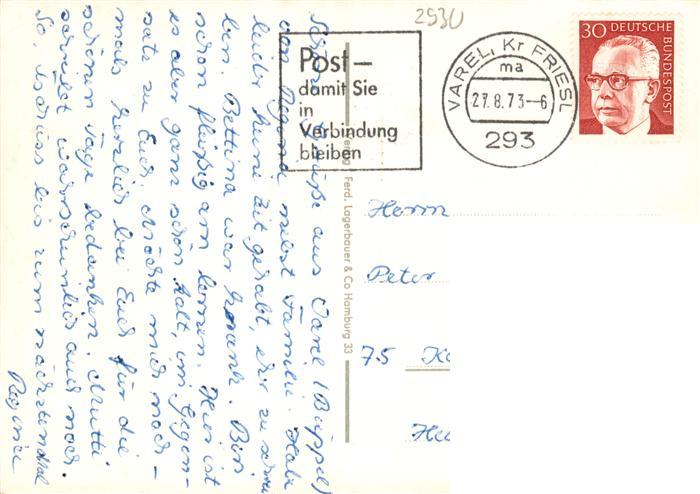 2930
Post –
damit Sie
in
Verbindung
bleiben
VAREL, Kr FRIESL
ma
27.8.73–6
293
30 DEUTSCHE
BUNDESPOST
Schöne Grüße aus Varel (Büppel)
von Regina nebst Familie. Habe
leider keine Zeit gehabt, eher zu schrei
ben. Bettina war krank. Bin
schon fleißig am lernen. Hier ist
es aber ganz schön kalt, im Gegen-
satz zu Euch. Möchte mich noch-
mals herzlich bei Euch für die
schönen Tage bedanken. Mutti
schreibt wahrscheinlich auch noch.
So, Schluss bis zum nächstenmal
Regina
Ferd. Lagerbauer & Co Hamburg 33
Herrn
Peter
75